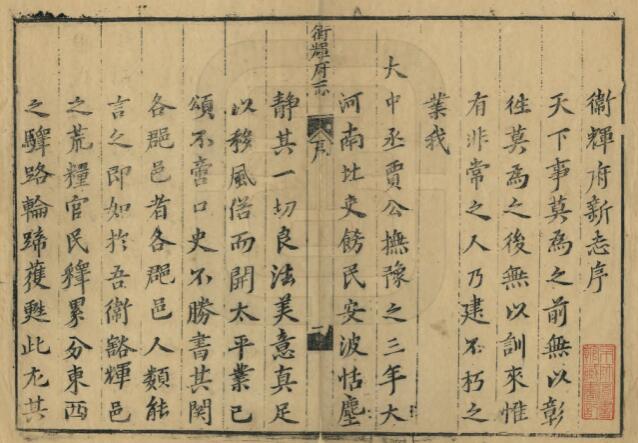 衞輝府新志序
天下事莫爲之前無以彰
徃莫爲之後無以訓來惟
有非常之人乃建不朽之
業我
大中丞賈公撫豫之三年大
河南北吏飭民安波恬塵
衛輝府志
序
一
静其一切良法美意真足
以移風俗而開太平業已
頌不啻口史不勝書其関
各郡邑者各郡邑人類能
言之即如於吾衞豁輝邑
之荒糧官民釋累分東西
之驛路輪蹄獲甦此尤其